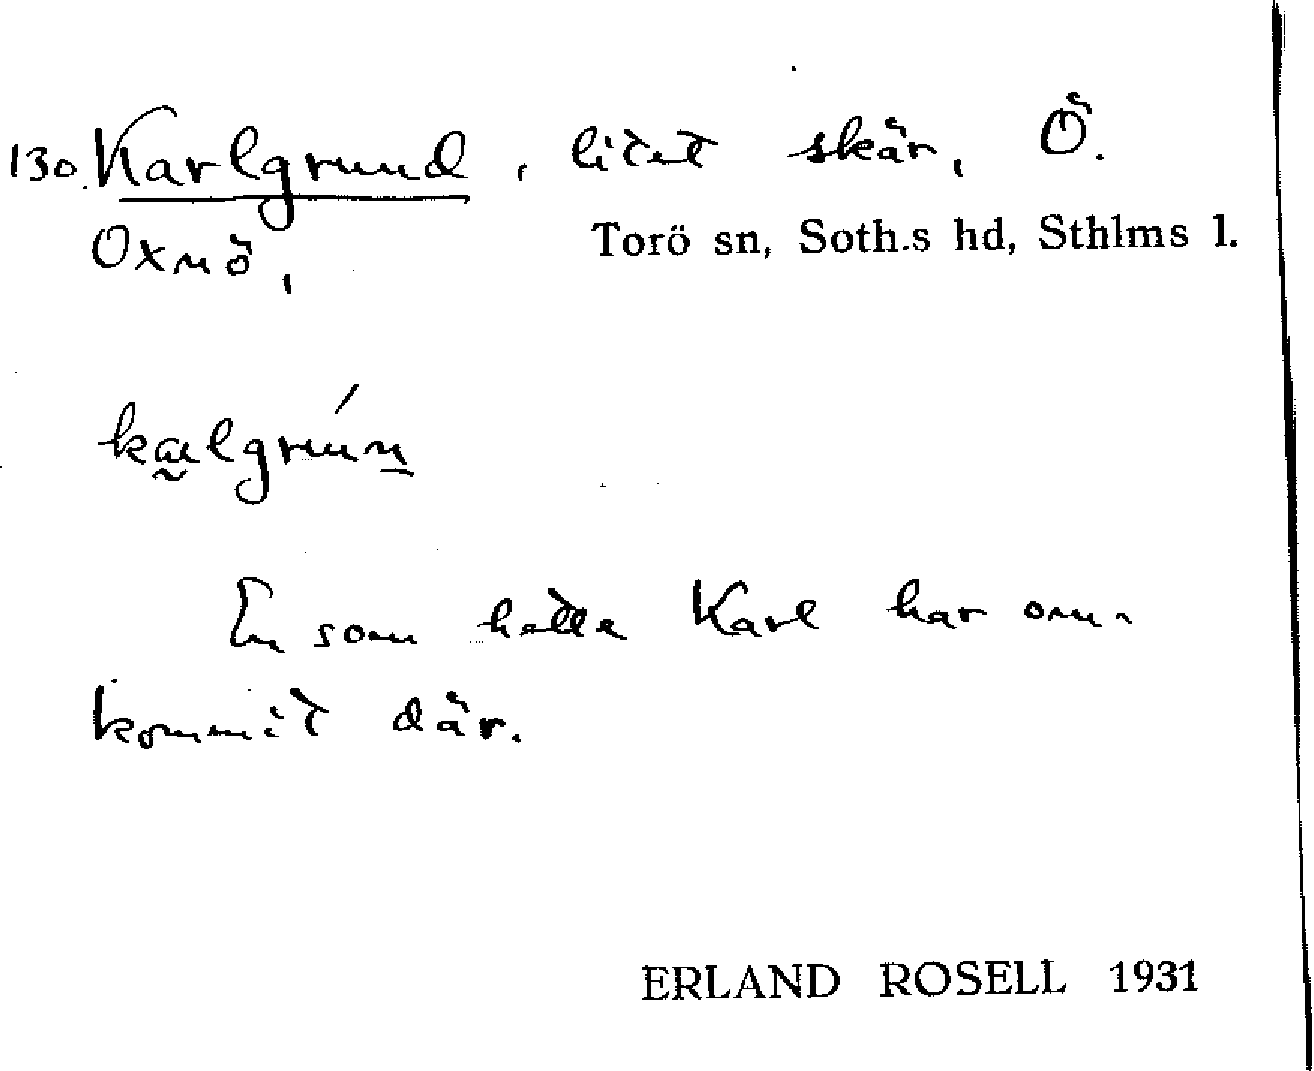 130. Karlgrund, litet skär, Ö.
Oxnö, Torö sn, Soth.s hd, Sthlms l.
kalgrún
En som hette Karl har om-
kommit där.
ERLAND ROSELL 1931